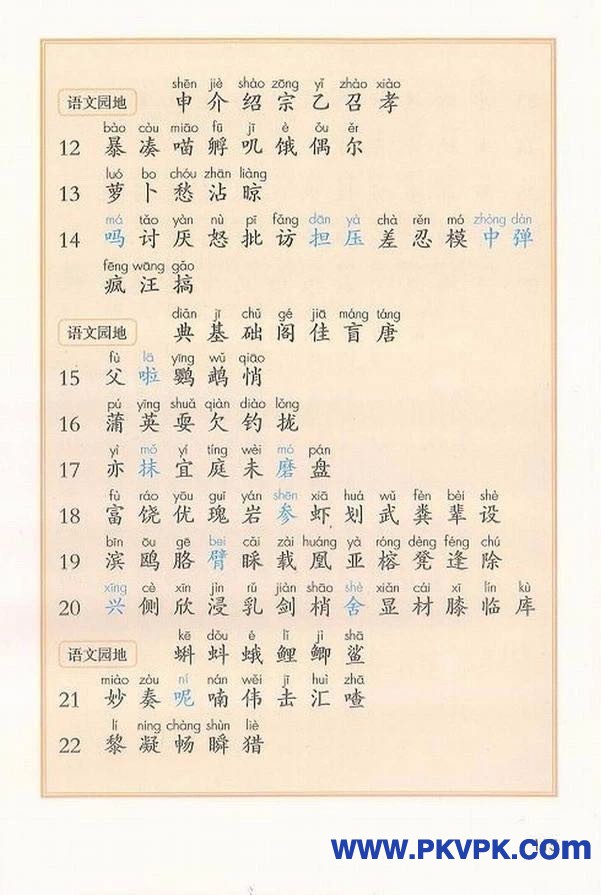 shēn jiè shào zōng yǐ zhào xiào
语文园地 申 介 绍 宗 乙 召 孝
bào còu miāo fū jī è ǒu ěr
12 暴 凑 喵 孵 叽 饿 偶 尔
luó bo chóu zhān liàng
13 萝 卜 愁 沾 晾
má tǎo yàn nù pī fǎng dān yà chà rěn mó zhòng dàn
14 吗 讨 厌 怒 批 访 担 压 差 忍 模 中 弹
fēng wāng gǎo
疯 汪 搞
diǎn jī chǔ gé jiā máng táng
语文园地 典 基 础 阁 佳 盲 唐
fù lā yīng wǔ qiāo
15 父 啦 鹦 鹉 悄
pú yīng shuǎ qiàn diào lǒng
16 蒲 英 耍 欠 钓 拢
yì mǒ yí tíng wèi mó pán
17 亦 抹 宜 庭 未 磨 盘
fù ráo yōu guī yán shēn xiā huá wǔ fèn bèi shè
18 富 饶 优 瑰 岩 参 虾 划 武 粪 辈 设
bīn ōu gē bei cǎi zài huáng yà róng dèng féng chú
19 滨 鸥 胳 臂 睬 载 凰 亚 榕 凳 逢 除
xīng cè xīn jìn rǔ jiàn shāo shè xiǎn cái xī lín kù
20 兴 侧 欣 浸 乳 剑 梢 舍 显 材 膝 临 库
kē dǒu é lǐ jì shā
语文园地 蝌 蚪 蛾 鲤 鲫 鲨
miào zòu ní nán wěi jī huì zhā
21 妙 奏 呢 喃 伟 击 汇 喳
lí níng chàng shùn liè
22 黎 凝 畅 瞬 猎
WWW.PKVPK.COM